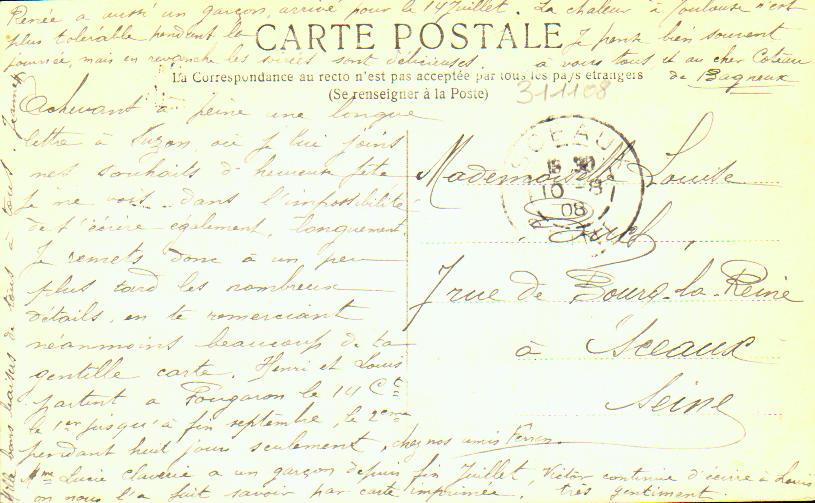 CARTE POSTALE
La Correspondance au recto n'est pas acceptée par tous les pays étrangers
(Se renseigner à la Poste)
311108
Achevant à peine une longue
lettre à Suzon, où je lui joins
mes souhaits d'heureuse fête
je me vois dans l'impossibilité
de t'écrire également longuement.
Je remets donc à un peu
plus tard les nombreux
détails, en te remerciant
néanmoins beaucoup de ta
gentille carte. Henri et Louis
partent à Fougaron le 14 Ct
le 1er jusqu'à fin septembre, le 2eme
pendant huit jours seulement, chez nos amis Ferran.
Mme Lucie Claverie a un garçon depuis fin Juillet, Victor continue d'écrire à Louis
on nous l'a fait savoir par carte imprimée, très gentiment.
Renée a aussi un garçon, arrivé pour le 14 Juillet. La chaleur à Toulouse n'est
plus tolérable pendant la
journée, mais en revanche les soirées sont délicieuses.
Je pense bien souvent
à vous tous et au cher Coteau
de Bagneux
bons baisers de tous à tous.
SCEAUX
10 - 8
08
Mademoiselle Louise
7 rue de Bourg-la-Reine
à Sceaux
Seine